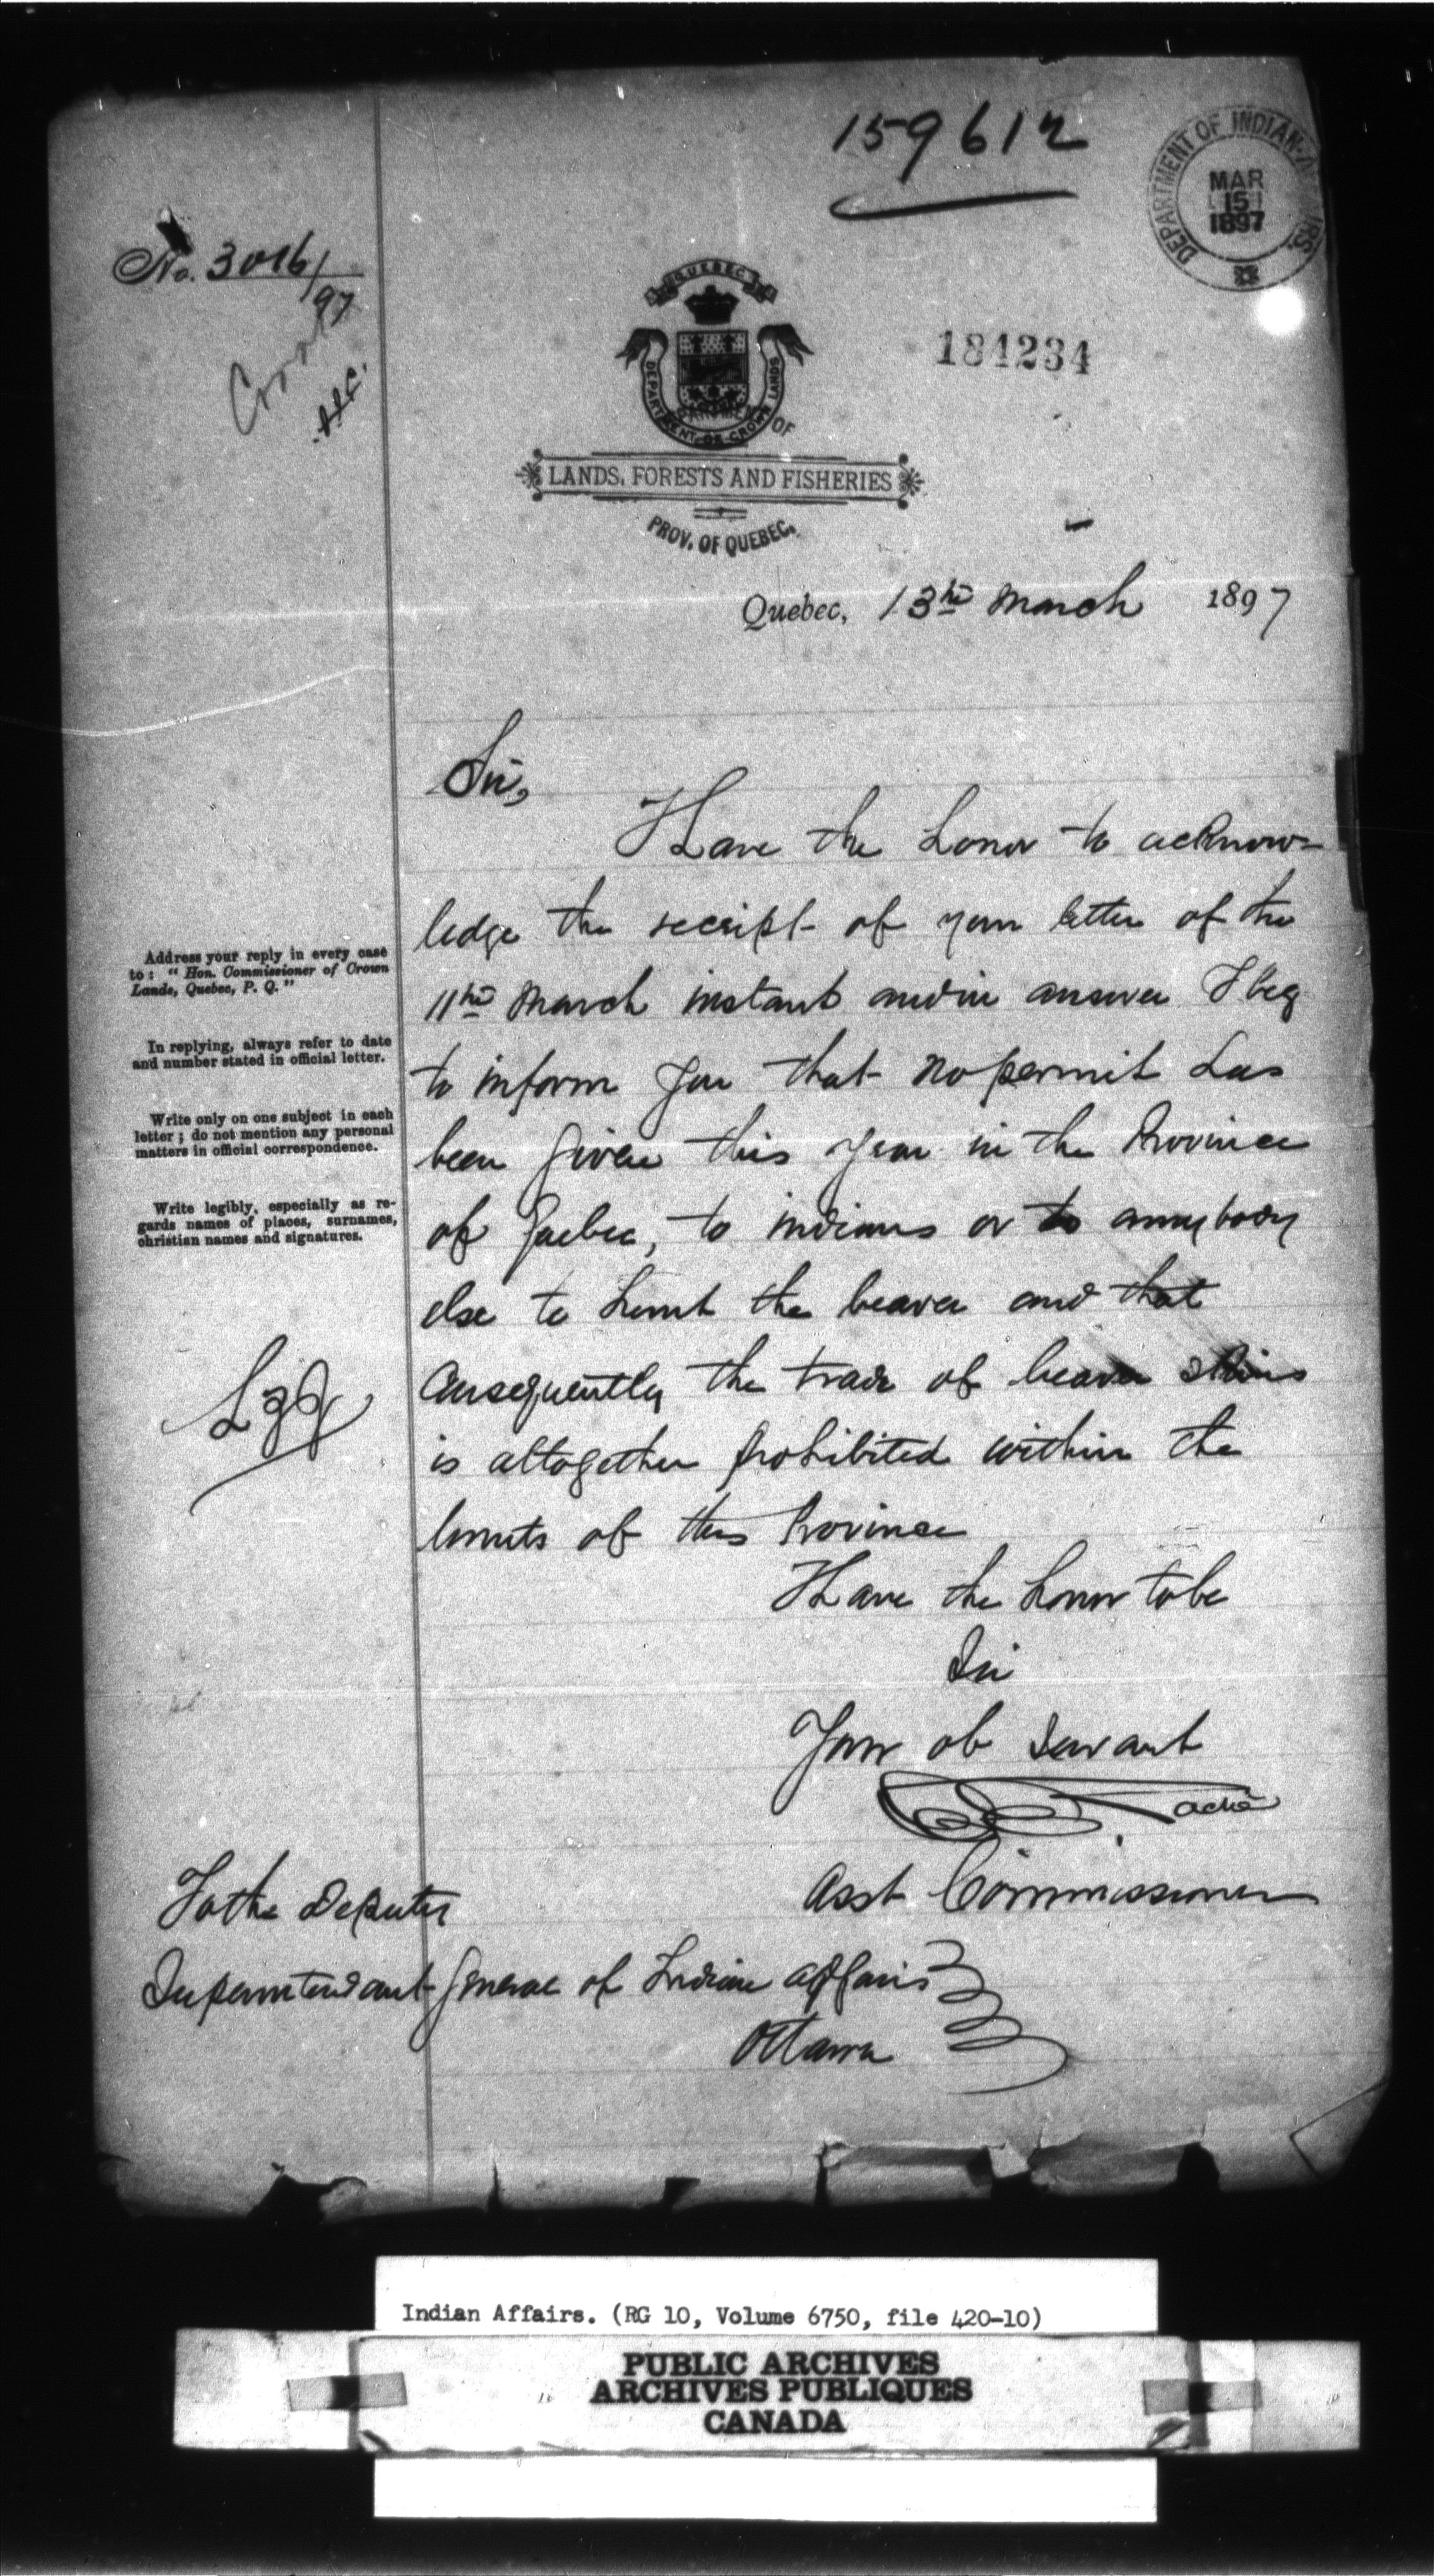 159612
DEPARTMENT OF INDIAN AFFAIRS
MAR
15
1897
No. 3016/97
QUEBEC
184234
DEPARTMENT OF CROWN LANDS
DEPARTMENT OF
LANDS, FORESTS AND FISHERIES
PROV. OF QUEBEC.
Quebec, 13th March 1897
Sir,
I Have the honor to acknow-
ledge the receipt of your letter of the
11th March instant and in answer I beg
to inform you that no permit has
been given this year in the Province
of Quebec, to indians or to anybody
else to hunt the beaver and that
consequently the trade of beaver skins
is altogether prohibited within the
limits of this Province
I Have the honor to be
Sir
Your ob servant
Taché
Asst Commissioner
To the Deputy
Superintendant General of Indian Affairs
Ottawa
Address your reply in every case
to: "Hon. Commissioner of Crown
Lands, Quebec, P. Q."
In replying, always refer to date
and number stated in official letter.
Write only on one subject in each
letter; do not mention any personal
matters in official correspondence.
Write legibly, especially as re-
gards names of places, surnames,
christian names and signatures.
Indian Affairs. (RG 10, Volume 6750, file 420-10)
PUBLIC ARCHIVES
ARCHIVES PUBLIQUES
CANADA